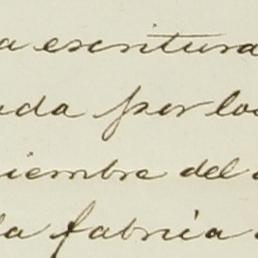 a escritura
ada por los
iembre del a
la fabrica